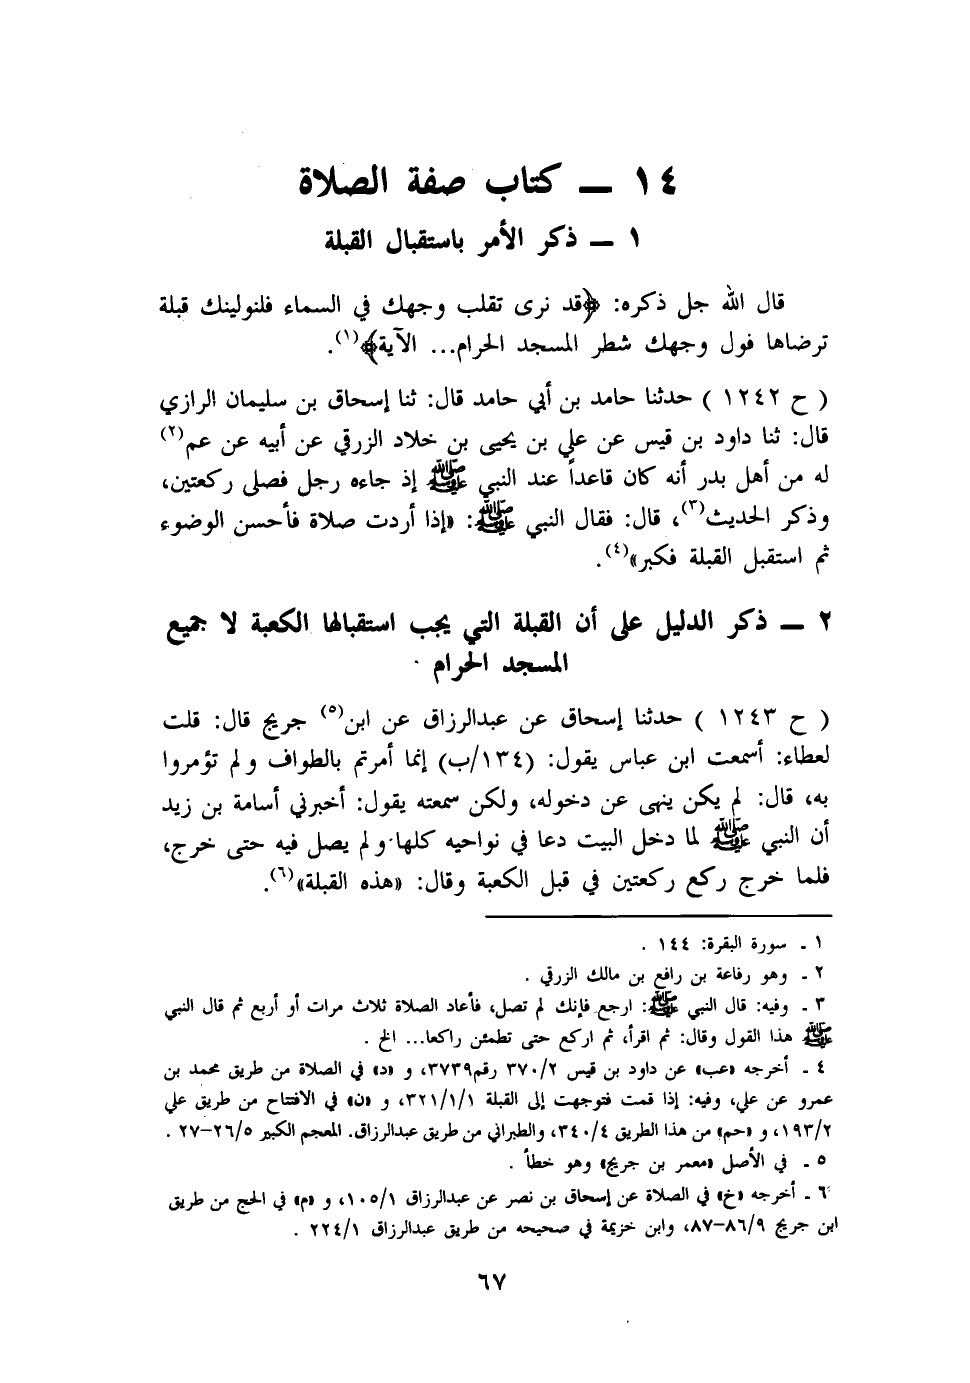 ١٤ ــ كتاب صفة الصلاة
١ ــ ذكر الأمر باستقبال القبلة
قال الله جل ذكره: ﴿قد نرى تقلب وجهك في السماء فلنولينك قبلة
ترضاها فول وجهك شطر المسجد الحرام... الآية﴾(١).
( ح ١٢٤٢ ) حدثنا حامد بن أبي حامد قال: ثنا إسحاق بن سليمان الرازي
قال: ثنا داود بن قيس عن علي بن يحيى بن خلاد الزرقي عن أبيه عن عم(٢)
له من أهل بدر أنه كان قاعداً عند النبي ﷺ إذ جاءه رجل فصلى ركعتين،
وذكر الحديث(٣)، قال: فقال النبي ﷺ: «إذا أردت صلاة فأحسن الوضوء
ثم استقبل القبلة فكبر»(٤).
٢ ــ ذكر الدليل على أن القبلة التي يجب استقبالها الكعبة لا جميع
المسجد الحرام
( ح ١٢٤٣ ) حدثنا إسحاق عن عبدالرزاق عن ابن(٥) جريج قال: قلت
لعطاء: أسمعت ابن عباس يقول: (١٣٤/ب) إنما أمرتم بالطواف ولم تؤمروا
به، قال: لم يكن ينهى عن دخوله، ولكن سمعته يقول: أخبرني أسامة بن زيد
أن النبي ﷺ لما دخل البيت دعا في نواحيه كلها ولم يصل فيه حتى خرج،
فلما خرج ركع ركعتين في قبل الكعبة وقال: «هذه القبلة»(٦).
١ ـ سورة البقرة: ١٤٤ .
٢ ـ وهو رفاعة بن رافع بن مالك الزرقي .
٣ ـ وفيه: قال النبي ﷺ: ارجع فإنك لم تصل، فأعاد الصلاة ثلاث مرات أو أربع ثم قال النبي
ﷺ هذا القول وقال: ثم اقرأ، ثم اركع حتى تطمئن راكعا... الخ .
٤ ـ أخرجه «عب» عن داود بن قيس ٣٧٠/٢ رقم٣٧٣٩، و «د» في الصلاة من طريق محمد بن
عمرو عن علي، وفيه: إذا قمت فتوجهت إلى القبلة ٣٢١/١/١، و «ن» في الافتتاح من طريق علي
١٩٣/٢، و «حم» من هذا الطريق ٣٤٠/٤، والطبراني من طريق عبدالرزاق. المعجم الكبير ٢٦/٥–٢٧ .
٥ ـ في الأصل «معمر بن جريج» وهو خطأ .
٦ ـ أخرجه «خ» في الصلاة عن إسحاق بن نصر عن عبدالرزاق ١٠٥/١، و «م» في الحج من طريق
ابن جريج ٨٦/٩–٨٧، وابن خزيمة في صحيحه من طريق عبدالرزاق ٢٢٤/١ .
٦٧